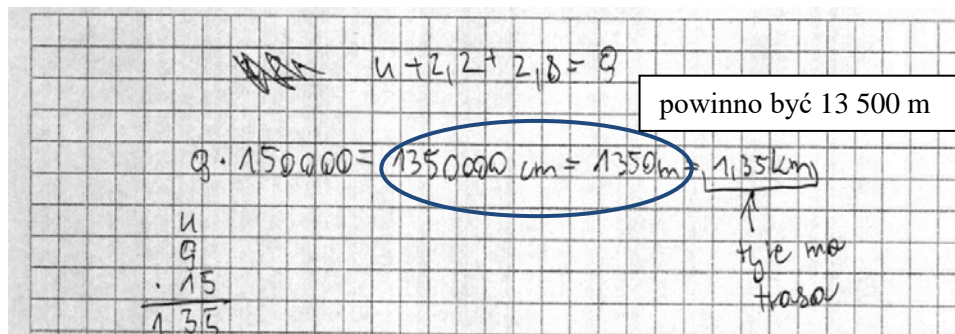 4 + 2,2 + 2,8 = 9
powinno być 13 500 m
9 · 150000 = 1350000 cm = 1350m = 1,35km
↑
tyle ma
trasa
4
9
· 15
135